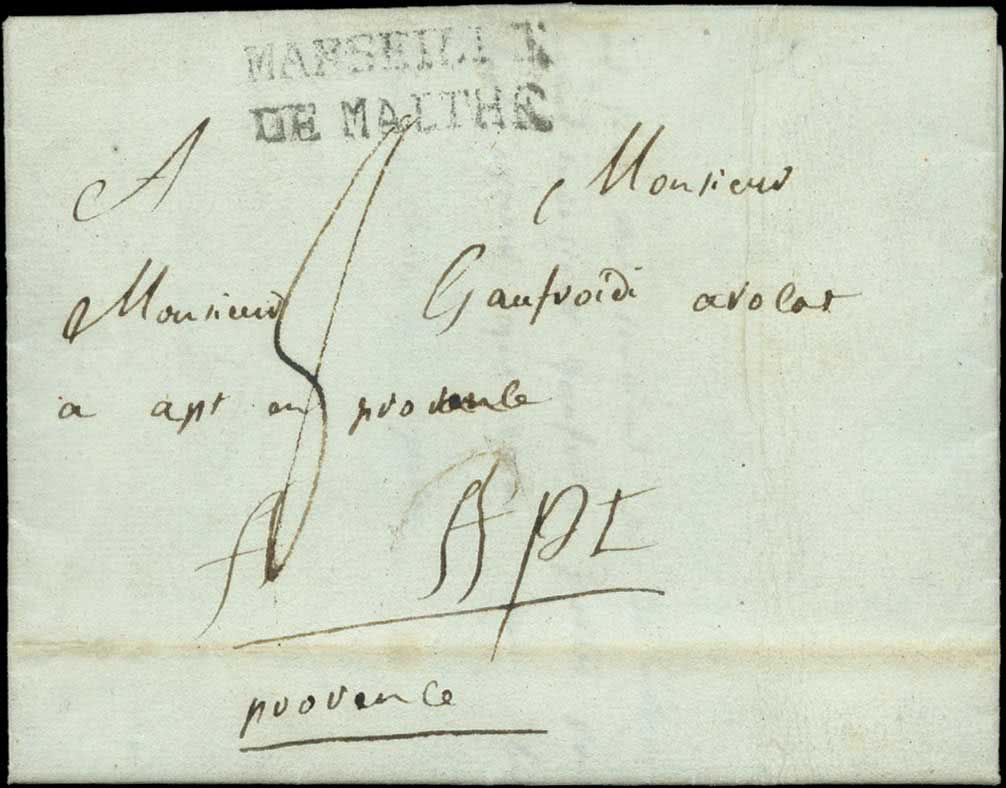 MARSEILLE
DE MALTHE
A Monsieur
Monsieur Gaufroidi avocat
a apt en provence
A Apt
provence